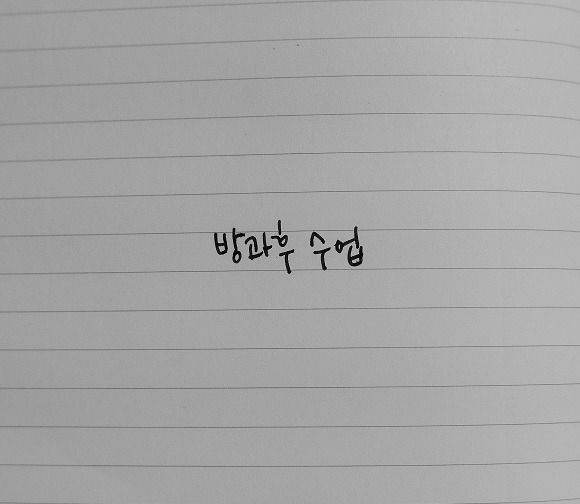 방과후 수업